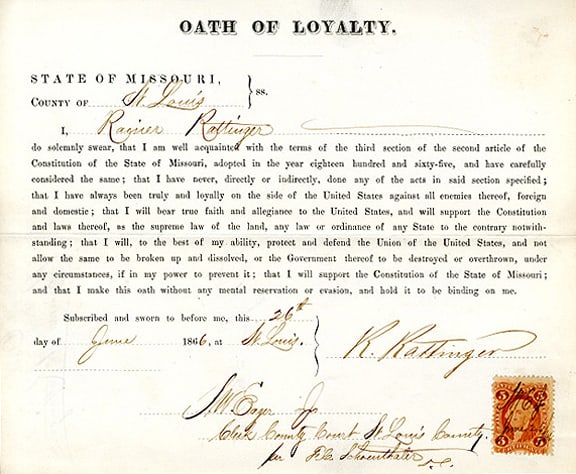 OATH OF LOYALTY.
STATE OF MISSOURI,
COUNTY OF St. Louis } ss.
I, Rainer Rattinger
do solemnly swear, that I am well acquainted with the terms of the third section of the second article of the
Constitution of the State of Missouri, adopted in the year eighteen hundred and sixty-five, and have carefully
considered the same; that I have never, directly or indirectly, done any of the acts in said section specified;
that I have always been truly and loyally on the side of the United States against all enemies thereof, foreign
and domestic; that I will bear true faith and allegiance to the United States, and will support the Constitution
and laws thereof, as the supreme law of the land, any law or ordinance of any State to the contrary notwith-
standing; that I will, to the best of my ability, protect and defend the Union of the United States, and not
allow the same to be broken up and dissolved, or the Government thereof to be destroyed or overthrown, under
any circumstances, if in my power to prevent it; that I will support the Constitution of the State of Missouri;
and that I make this oath without any mental reservation or evasion, and hold it to be binding on me.
Subscribed and sworn to before me, this 26th
day of June 1866, at St. Louis.
R. Rattinger
Jr
Clerk County Court St Louis County.
per
5 5
5 5